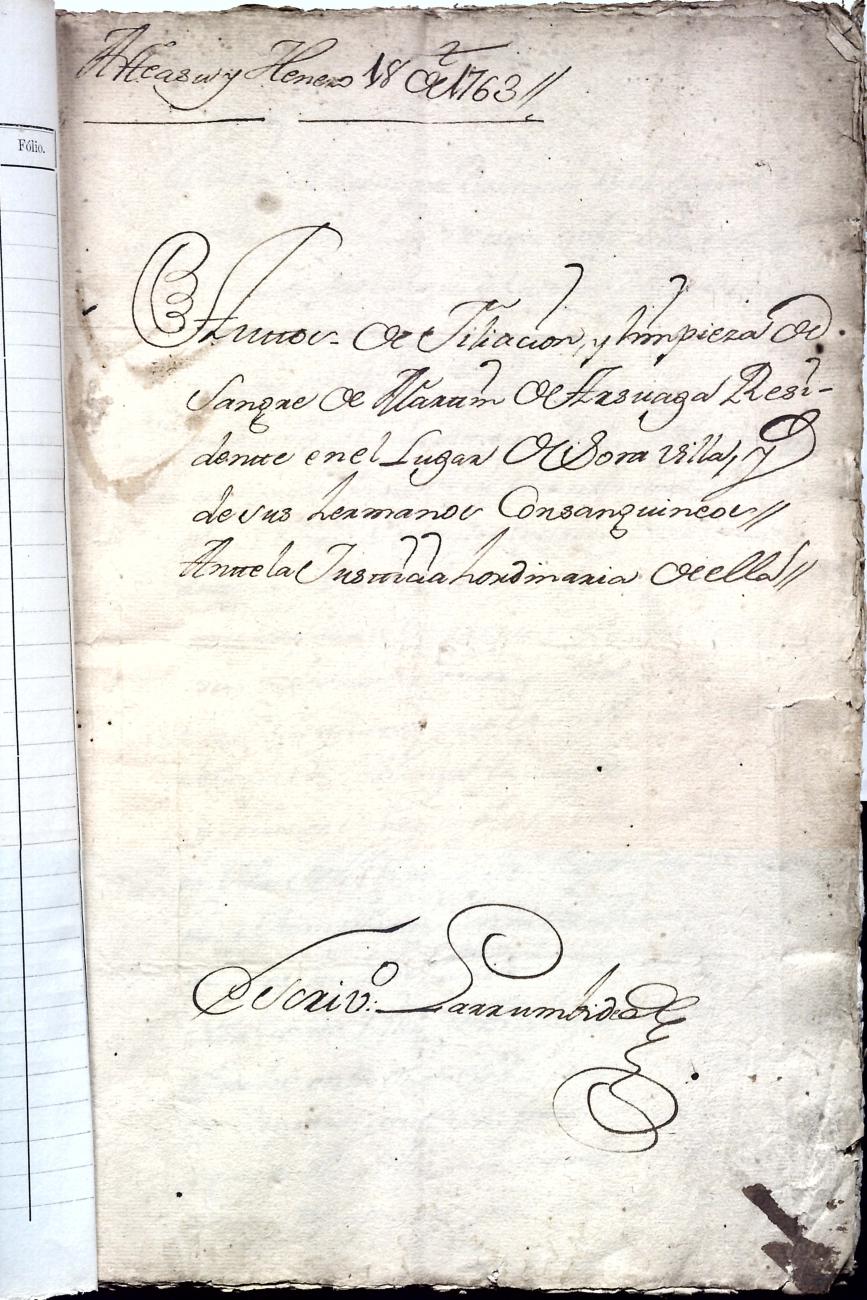 Atteasu y Henero 18 de 1763//
Fólio.
Auttos de Filiacion, y limpieza de
Sangre de Martin de Arsuaga Resi-
dentte en el Lugar de Sora villa, y
de sus hermanos Consanguineos//
Antte la Justticia hordinaria de ella//
Escrivo. Larrumbide